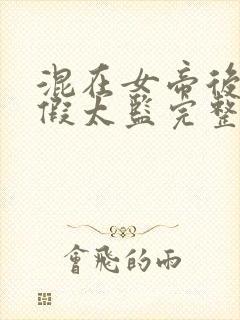 混在女帝後
假太監完整
會飛的雨